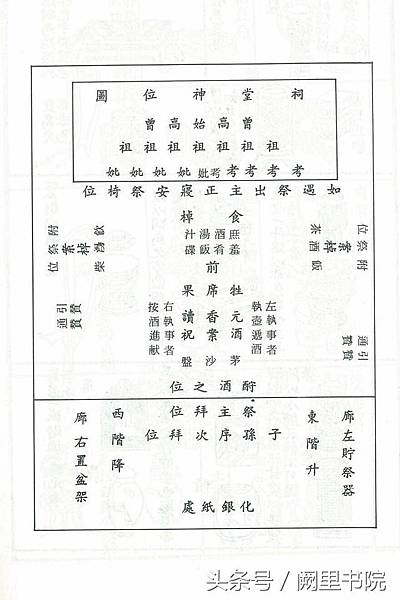 祠堂神位圖
曾高始高曾
祖祖祖祖祖祖祖
考考考考考妣妣妣妣妣
如遇祭出主正寢安祭椅位
食棹
庶羞
酒肴
湯飯
汁碟
前
附祭位
飯酒茶
附祭位
牲席果
元酒
香案
讀祝
茅沙盤
左執事者
執壺遞酒
右執事者
按酒進献
引贊
通贊
引贊
通贊
酹酒之位
祭主拜位
子孫序次拜位
東階升
西階降
廊左貯祭器
廊右置盆架
化銀紙處
头条号 / 阙里书院